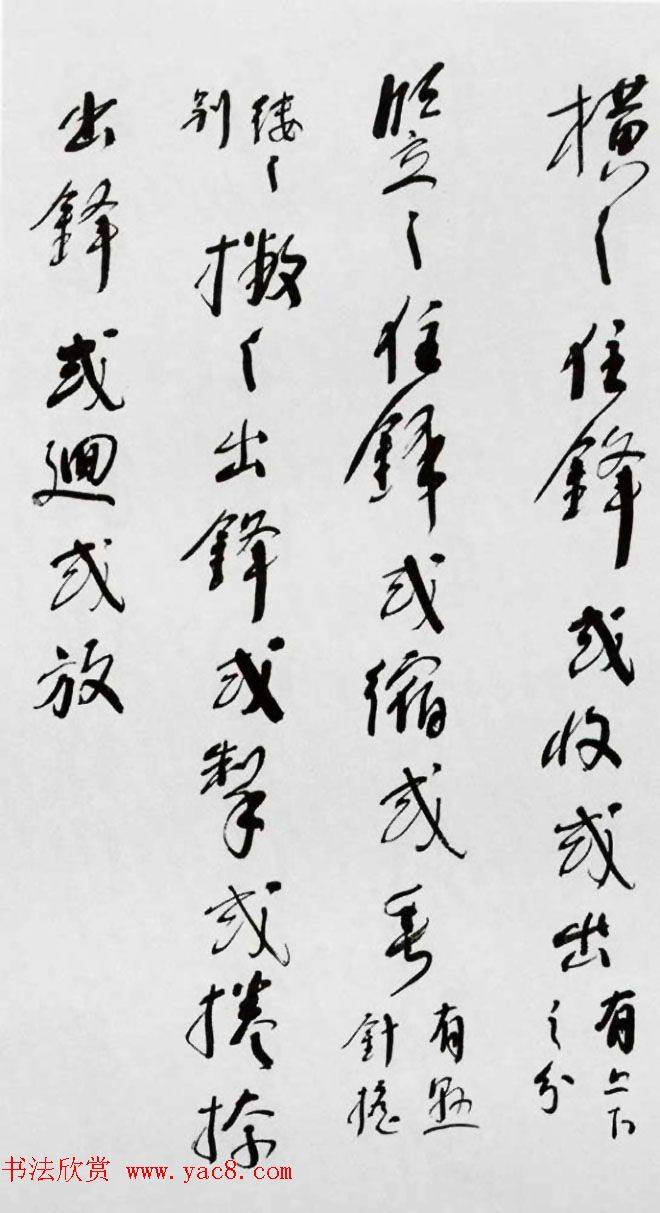 橫之住鋒或收或出有上下之分
豎之住鋒或縮或垂有懸針
之別撇之出鋒或掣或捲捺
出鋒或迴或放
书法欣赏 www.yac8.com